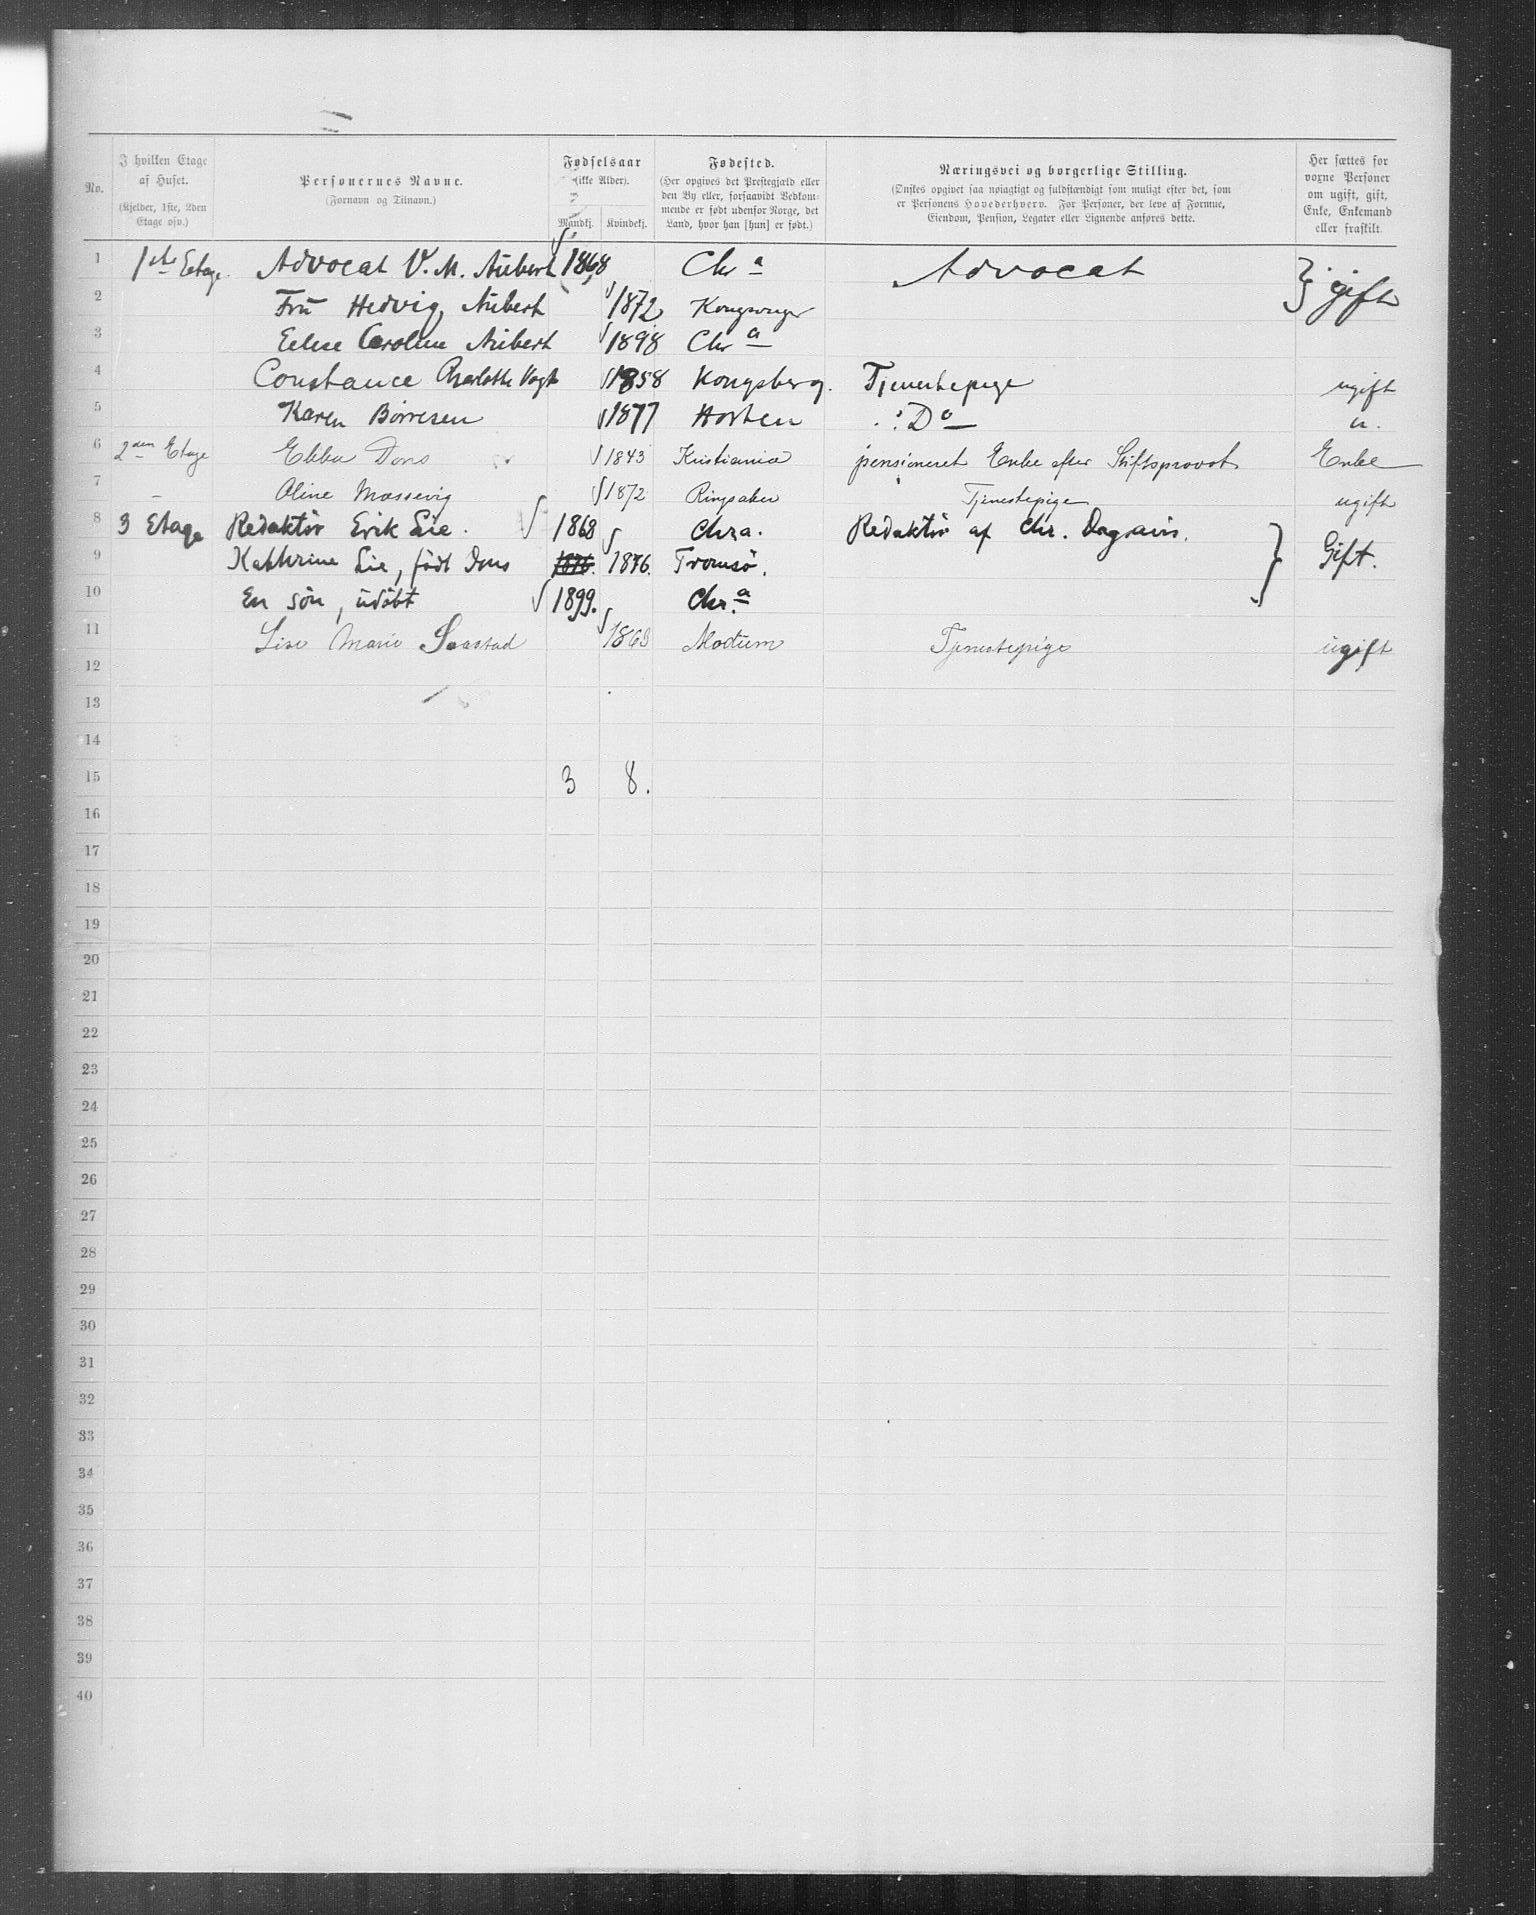 No.
I hvilken Etage af Huset.
(Kjelder, 1ste, 2den Etage osv.)
Personernes Navne.
(Fornavn og Tilnavn.)
Fødselsaar
(ikke Alder).
Mandkj. Kvindekj.
Fødested.
(Her opgives det Prestegjæld eller
den By eller, forsaavidt Vedkom-
mende er født udenfor Norge, det
Land, hvor han [hun] er født.)
Næringsvei og borgerlige Stilling.
(Ønskes opgivet saa nøiagtigt og fuldstændigt som muligt efter det, som
er Personens Hovederhverv. For Personer, der leve af Formue,
Eiendom, Pension, Legater eller Lignende anføres dette.
Her sættes for
voxne Personer
om ugift, gift,
Enke, Enkemand
eller fraskilt.
1 1ste Etage. Advocat V. M. Aubert 1868 Chr a Advocat } gift
2 Fru Hedvig Aubert 1872 Kongsvinger
3 Caroline Aubert 1898 Chr a
4 Constance Charlotte Vogt 1858 Kongsberg. Tjenestepige ugift
5 Karen Børresen 1877 Horten Do u.
6 2den Etage Ebba Dons 1843 Kristiania pensioneret Enke efter Stiftsprovst Enke
7 – Aline Mossevig 1872 Ringsaker Tjenestepige ugift
8 3 Etage Redaktør Erik Lie. 1868 Chra. Redaktør af Chr. Dagsavis. } Gift.
9 Kathrine Lie, født Dons 1876. 1876. Tromsø.
10 En søn, udøbt 1899. Chr. a
11 Lise Marie Saastad 1863 Modum Tjenestepige ugift
12
13
14
15 3 8.
16
17
18
19
20
21
22
23
24
25
26
27
28
29
30
31
32
33
34
35
36
37
38
39
40